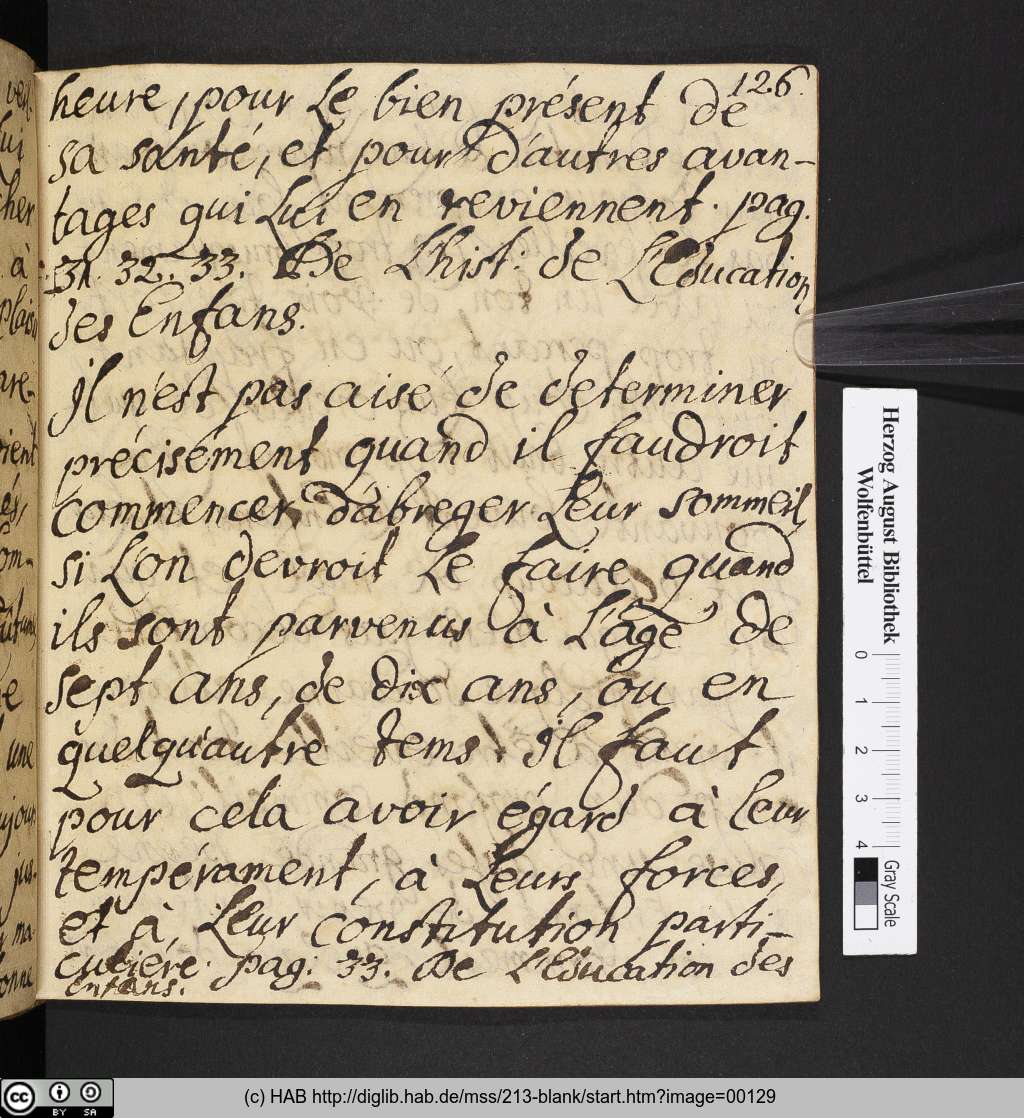 126.
heure, pour Le bien présent de
sa santé, et pour d'autres avan-
tages qui Lui en reviennent. pag.
31. 32. 33. De L'hist: de L'Education
des Enfans.
Il n'est pas aisé de determiner
précisément quand il faudroit
commencer d'abreger Leur sommeil,
si L'on devroit Le faire quand
ils sont parvenus à L'age de
sept ans, de dix ans, ou en
quelqu'autre tems. Il faut
pour cela avoir égard à Leur
tempérament, à Leurs forces,
et à Leur constitution parti-
culiere. pag: 33. De L'Education des
Enfans.
ven-
Lui
cher
à
plaisi
are-
vient
om-
une
ujour
jus-
ma
onne
Herzog August Bibliothek
Wolfenbüttel
0 1 2 3 4
Gray Scale
cc BY SA
(c) HAB http://diglib.hab.de/mss/213-blank/start.htm?image=00129